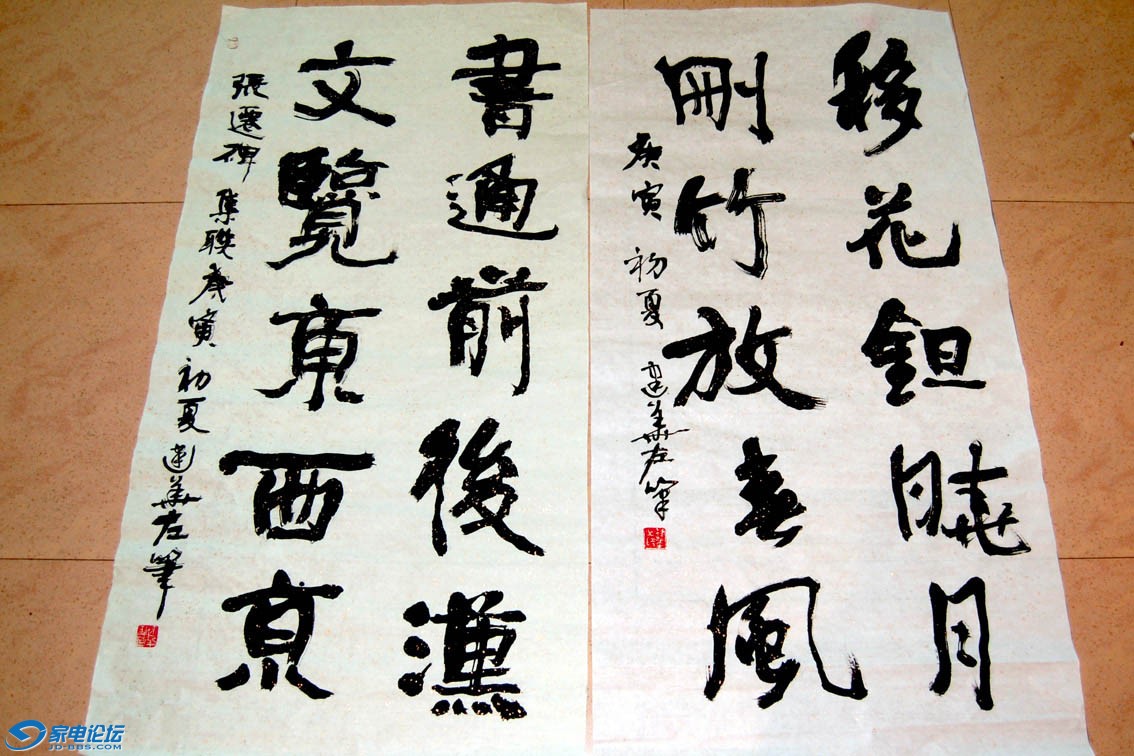 移花鉏曉月
刪竹放春風
庚寅初夏 華左筆
書通前後漢
文覽東西京
張遷碑集聯庚寅初夏 華左筆
家电论坛
JD-BBS.COM